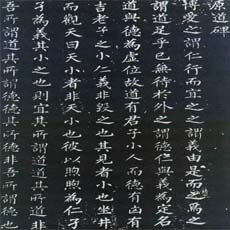 原道碑
博愛之謂仁行而宜之之謂義由是而之焉之
謂道足乎己無待於外之謂德仁與義為定名
道與德為虛位故道有君子小人而德有凶有
吉老子之小仁義非毀之也其見者小也坐井
而觀天曰天小者非天小也彼以煦煦為仁孑
孑為義其小之也則宜其所謂道道其所道非
吾所謂道其所謂德其所德非吾所謂德也